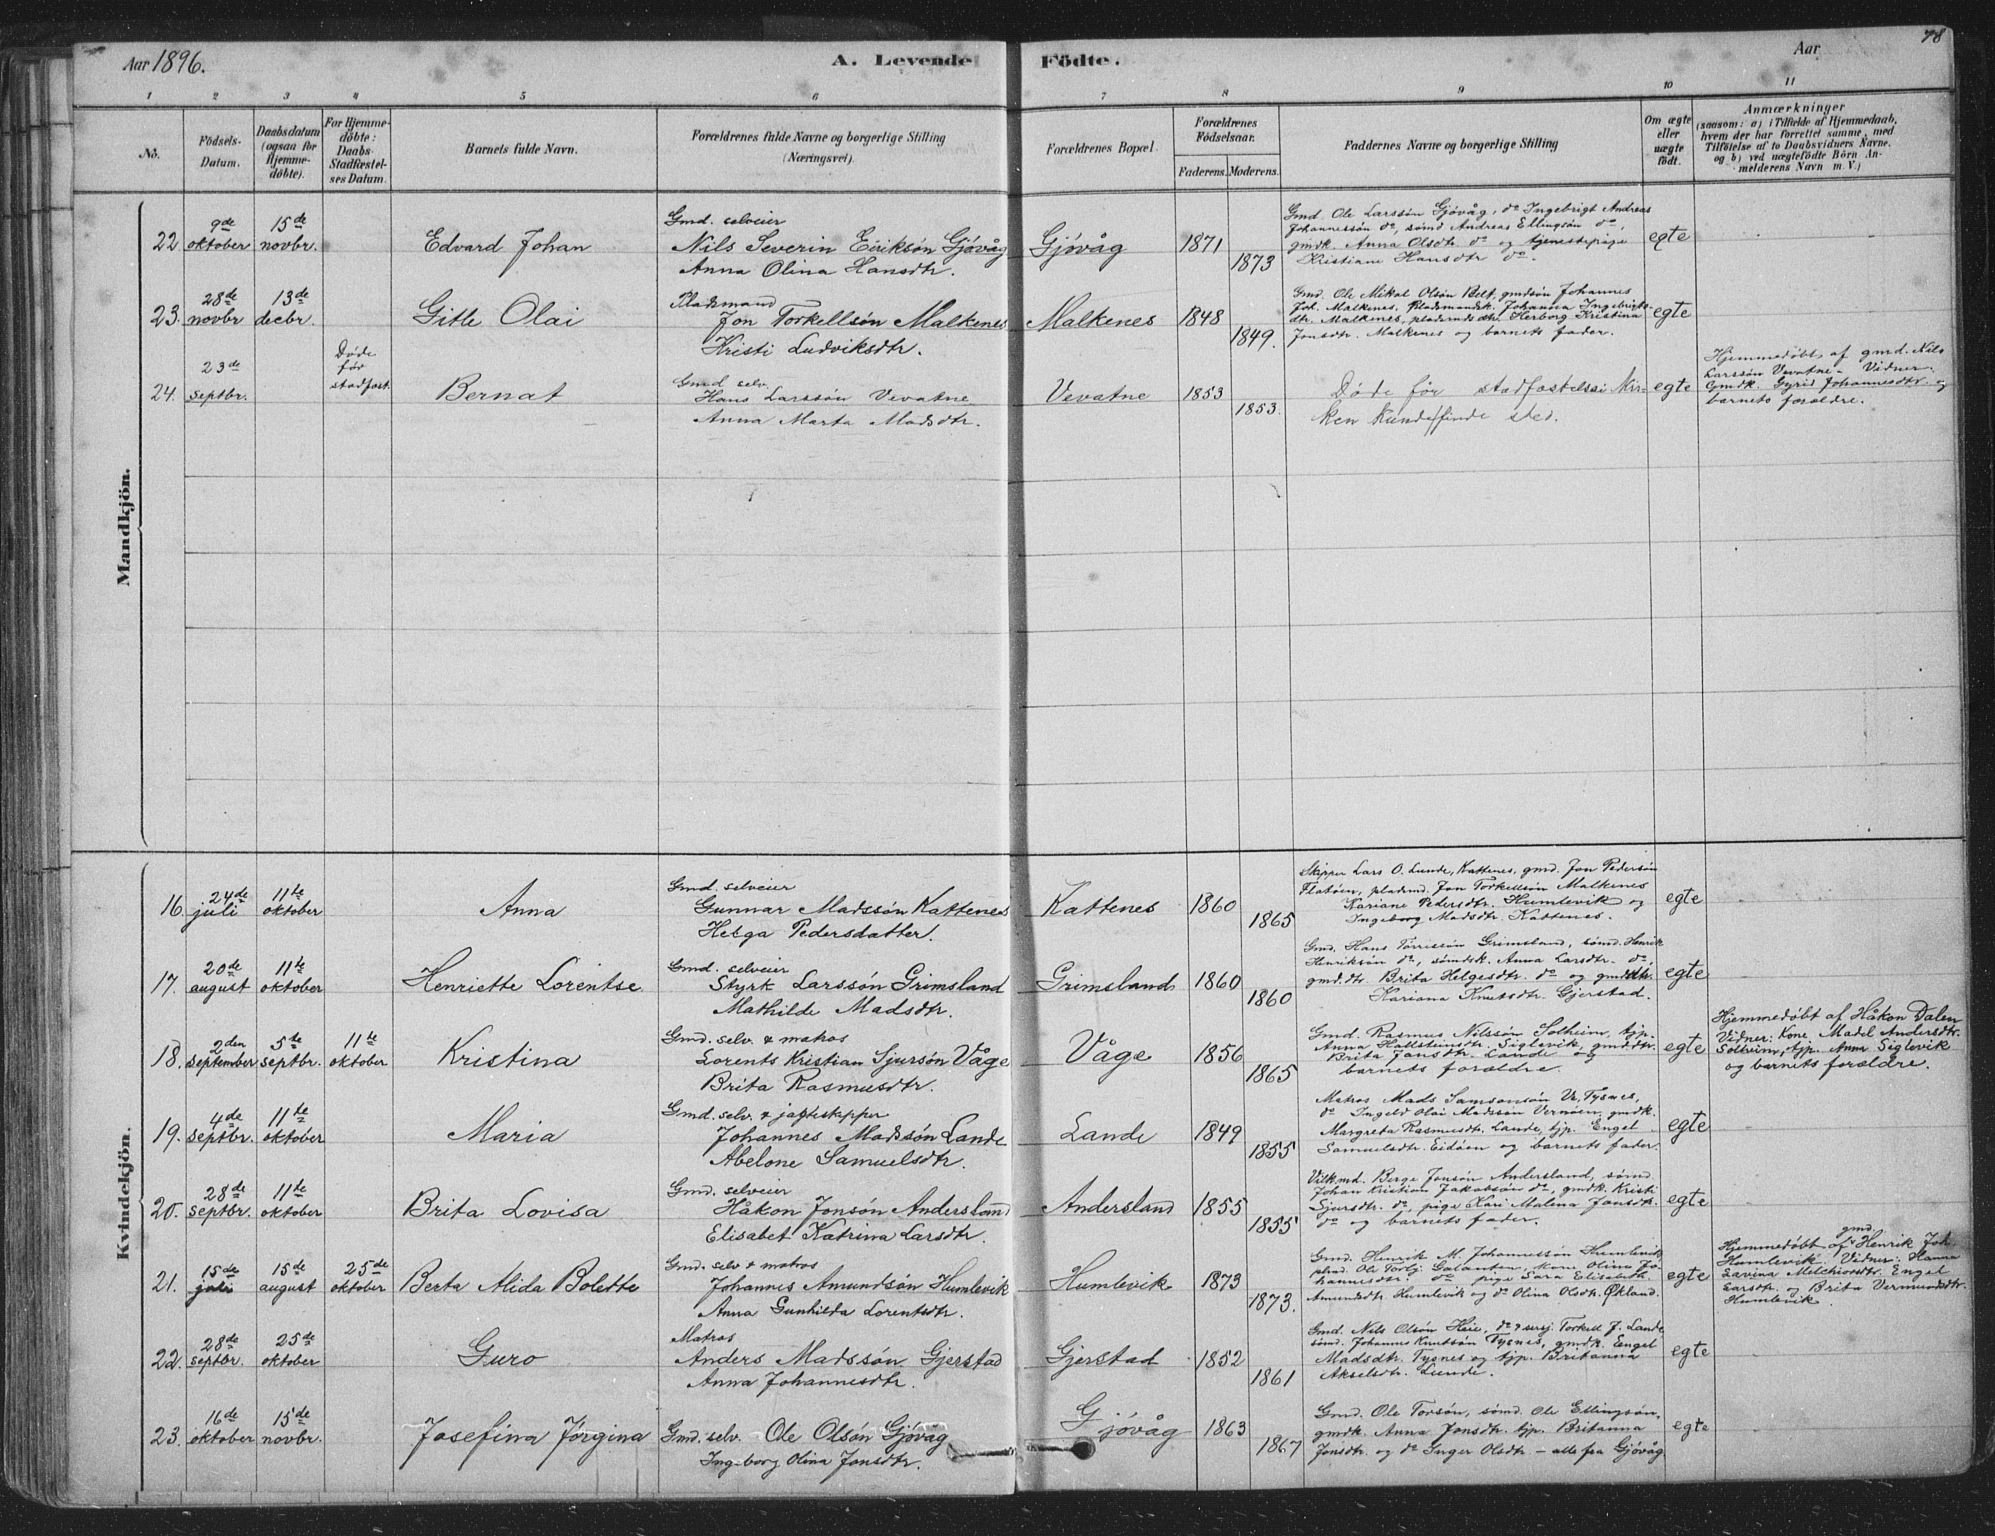 Aar 1896.
A. Levende Födte.
Aar
78
1 2 3 4 5 6 7 8 9 10 11
No.
Födsels-
Datum.
Daabsdatum
(ogsaa for
Hjemme-
döbte).
For Hjemme-
döbte:
Daabs-
Stadfæstel-
ses Datum.
Barnets fulde Navn.
Forældrenes fulde Navne og borgerlige Stilling
(Næringsvei).
Forældrenes Bopæl.
Forældrenes
Födselsaar.
Faderens. Moderens.
Faddernes Navne og borgerlige Stilling
Om ægte
eller
uægte
födt.
Anmærkninger
(saasom: a) i Tilfælde af Hjemmedaab,
hvem der har forrettet samme, med
Tilföielse af to Daabsvidners Navne,
og b) ved uægtefödte Börn An-
melderens Navn m. V.)
Mandkjön.
22. 9de oktober
15de novbr.
Edvard Johan
Gmd. selveier
Nils Severin Eiriksön Gjövåg
Anna Olina Hansdtr.
Gjövåg
1871
1873
Gmd. Ole Larssön Gjövåg, do Ingebrigt Andreas
Johannessön do, sömd Andreas Ellingsön do,
gmdk. Anna Olsdtr. do og tjenestepige
Kristiane Hansdtr do.
egte
23. 28de novbr
13de decbr.
Gitle Olai
Pladsmand
Jon Torkellsön Malkenes
Kristi Ludviksdtr.
Malkenes
1848
1849.
Gmd. Ole Mikal Olsön Belt, gmdsön Johannes
Joh. Malkenes, Pladsmandk. Johanna Ingebrigts-
dtr. Malkenes, pladsmds dtr. Herborg Kristina
Jonsdtr. Malkenes og barnets fader.
egte
24. 23de septbr.
Döde
för
stadfæst.
Bernat
Gmd selv.
Hans Larssön Vevatne
Anna Marta Madsdtr.
Vevatne
1853
1853.
Döde för stadfæstelse i Kir-
ken kunde finde sted.
egte
Hjemmedöbt af gmd. Nils
Larssön Vevatne – Vidner.
Gmdk. Gyrid Johannesdtr. og
barnets forældre.
Kvindekjön.
16. 24de juli
11te oktober
Anna
Gmd. selveier
Gunnar Madssön Kattenes
Helga Pedersdatter.
Kattenes
1860
1865
Skipper Lars O. Lunde, Kattenes, gmd. Jon Pedersön
Flatöen, pladsmd. Jon Torkellsön Malkenes
Kariane Pedersdtr. Humlevik og
Ingeborg Madsdtr. Kattenes.
egte
17. 20de august
11te oktober
Henriette Lorentse
Gmd. selveier
Styrk Larssön Grimsland
Mathilde Madsdtr.
Grimsland
1860
1860
Gmd. Hans Törrissön Grimsland, sömd. Henrik
Henriksön do, sömdk. Anna Larsdtr. do,
gmd.dtr Brita Helgesdtr. do og gmddtr.
Kariana Knutsdtr. Gjerstad.
egte
18. 2den september
5te septbr.
11te oktober
Kristina
Gmd. selv. & matros
Lorents Kristian Sjursön Våge
Brita Rasmusdtr.
Våge
1856
1865
Gmd. Rasmus Nilssön Solheim, tjp.
Anna Hallsteinsdtr. Siglevik, gmd.dtr.
Brita Jansdtr. Lande og
barnets forældre.
egte
Hjemmedöbt af Håkon Dalen
Vidner: Kone Madel Andersdtr.
Solheim, tjp. Anna Siglevik
og barnets forældre.
19. 4de septbr.
11te oktober
Maria
Gmd. selv. & jagteskipper
Johannes Madssön Lande
Abelone Samuelsdtr.
Lande
1849
1855
Matros Mads Samsonsön Ve, Tysnes,
do Ingeld Olai Madssön Vernöen, gmdk.
Margreta Rasmusdtr. Lande, tjp. Engel
Samuelsdtr. Eidöen og barnets fader.
egte
20. 28de septbr.
11te oktober
Brita Lovisa
Gmd. selveier
Håkon Jonsön Andersland
Elisabet Katrina Larsdtr.
Andersland
1855
1855
Vilkmd. Berge Jonsön Andersland, sömd.
Johan Kristian Jakobsön do, gmdk. Kristi
Sjursdtr. do, pige Kari Malena Jonsdtr.
do og barnets fader.
egte
21. 15de juli
15de august
25de oktober
Berta Alida Bolette
Gmd. selv & matros
Johannes Amundsön Humlevik
Anna Gunhilda Lorentsdtr.
Humlevik
1873
1873.
Gmd. Henrik M. Johannessön Humlevik
plmd. Ole Torbj. Galanten, kone Olina Jo-
hannesdtr. do, pige Sara Elisabeth
Amundsdtr. Humlevik og do Olina Olsdtr. Økland.
egte
Hjemmedöbt af gmd. Henrik Joh.
Humlevik. Vidner: Hanna
Lavina Melchiorsdtr. Engel
Larsdtr. og Brita Vermundsdtr.
Humlevik.
22. 28de septbr.
25de oktober
Guro
Matros
Anders Madssön Gjerstad
Anna Johannesdtr.
Gjerstad
1852
1861
Gmd. Nils Olsön Heie, do & sersj. Torkell J. Lande
sömd. Johannes Knutsön Tysnes, gmdk. Engel
Madsdtr. Tysnes og tjp. Britanna
Akselsdtr. Lunde.
egte
23. 16de oktober
15de novbr.
Josefina Jörgina
Gmd. selv. Ole Olsön Gjövåg
Ingeborg Olina Jonsdtr.
Gjövåg
1863
1867
Gmd. Ole Torsön, sömd. Ole Ellingsön,
gmdk. Anna Jonsdtr. tjp. Britanna
Jonsdtr. og do Inger Olsdtr – alle fra Gjövåg
egte